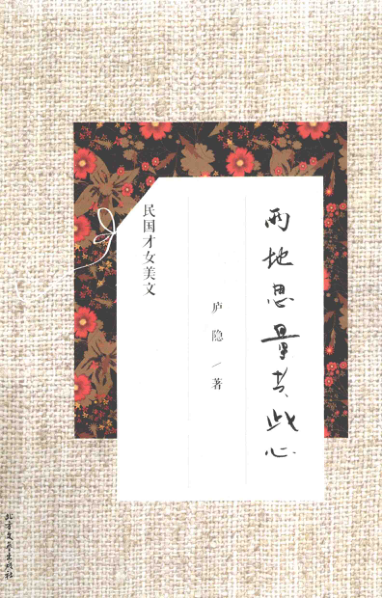 两地思量共此心
庐隐／著
民国才女美文
北方文艺出版社